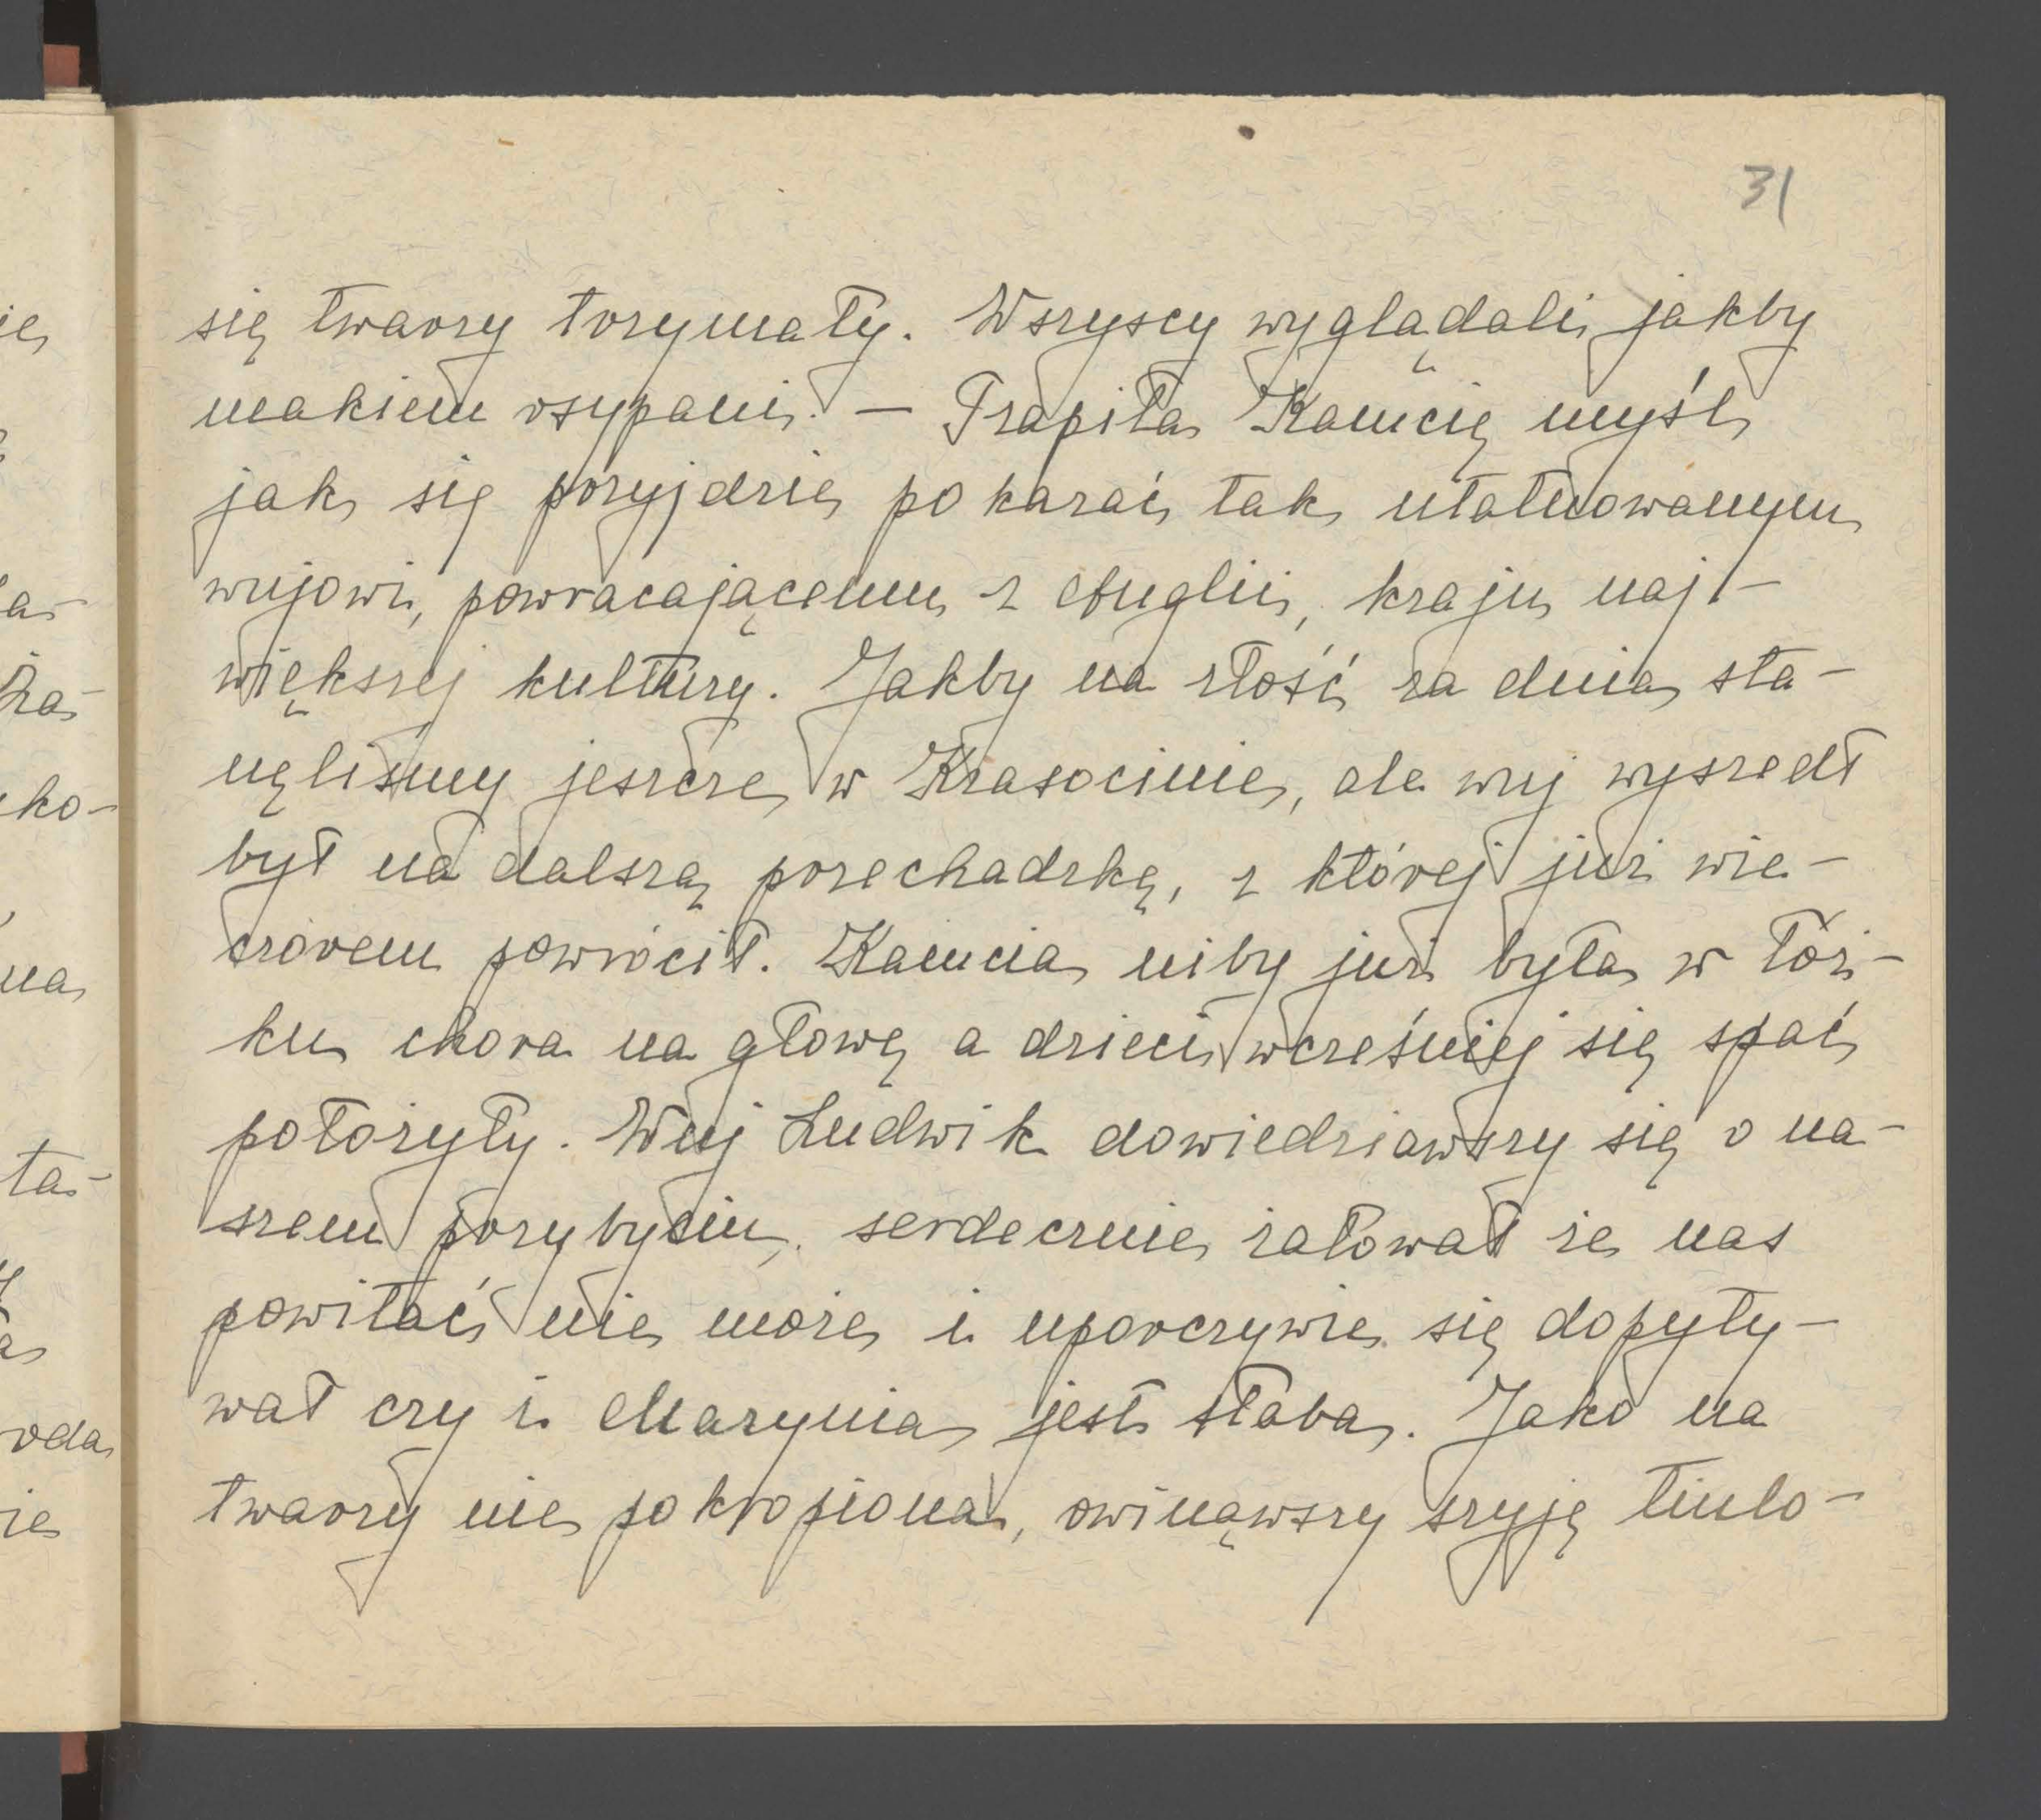 31
się twarzy trzymały. Wszyscy wyglądali jakby
makiem osypani. — Trapiła Kamcię myśl
jak się przyjdzie pokazać tak utatuowanym
wujowi, powracającemu z Anglii, kraju naj-
większej kultury. Jakby na złość za dnia sta-
nęliśmy jeszcze w Krasocinie, ale wuj wyszedł
był na dalszą przechadzkę, z której już wie-
czorem powrócił. Kamcia niby już była w łóż-
ku chora na głowę a dzieci wcześniej się spać
położyły. Wuj Ludwik dowiedziawszy się o na-
szem przybyciu, serdecznie żałował że nas
powitać nie może i uporczywie się dopyty-
wał czy i Marynia jest słaba. Jako na
twarzy nie pokropiona, owinąwszy szyję tiulo-
ię
ża-
ko-
na
ta-
oda
ie